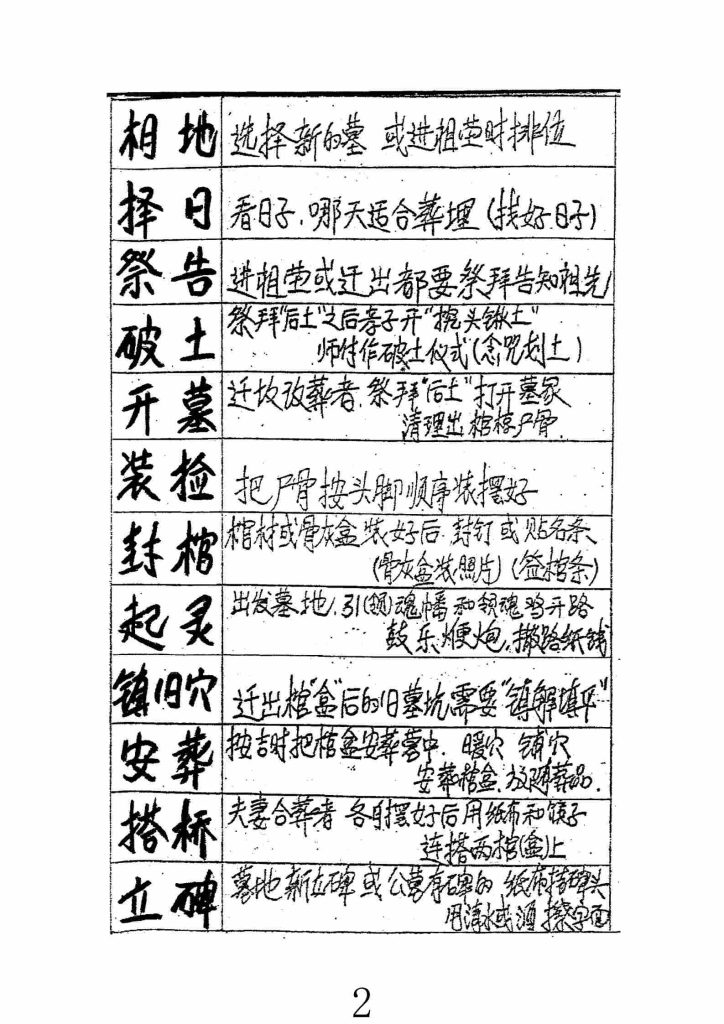 相地 选择新的墓 或进祖茔时排位
择日 看日子.哪天适合葬埋(找好日子)
祭告 进祖茔或迁出都要祭拜告知祖先
破土 祭拜"后土"之后孝子开"挖头锹土"
师付作破土仪式(念咒划土)
开墓 迁坟改葬者.祭拜"后土"打开墓冢
清理出棺椁尸骨.
装捡 把尸骨按头脚顺序装摆好
封棺 棺材或骨灰盒装好后.封钉或贴名条
(骨灰盒装照片)(签棺条)
起灵 出发墓地.引(领)魂幡和领魂鸡开路
鼓乐鞭炮.撒路纸钱
镇旧穴 迁出棺"盒"后的旧墓坑需要"镇解填平"
安葬 按吉时把棺盒安葬墓中.暖穴 铺穴
安葬棺盒.放随葬品.
搭桥 夫妻合葬者 各自摆好后用纸布和筷子
连搭两棺(盒)上
立碑 墓地新立碑或公墓有碑的 纸布搭碑头
用清水或酒 擦字面
2